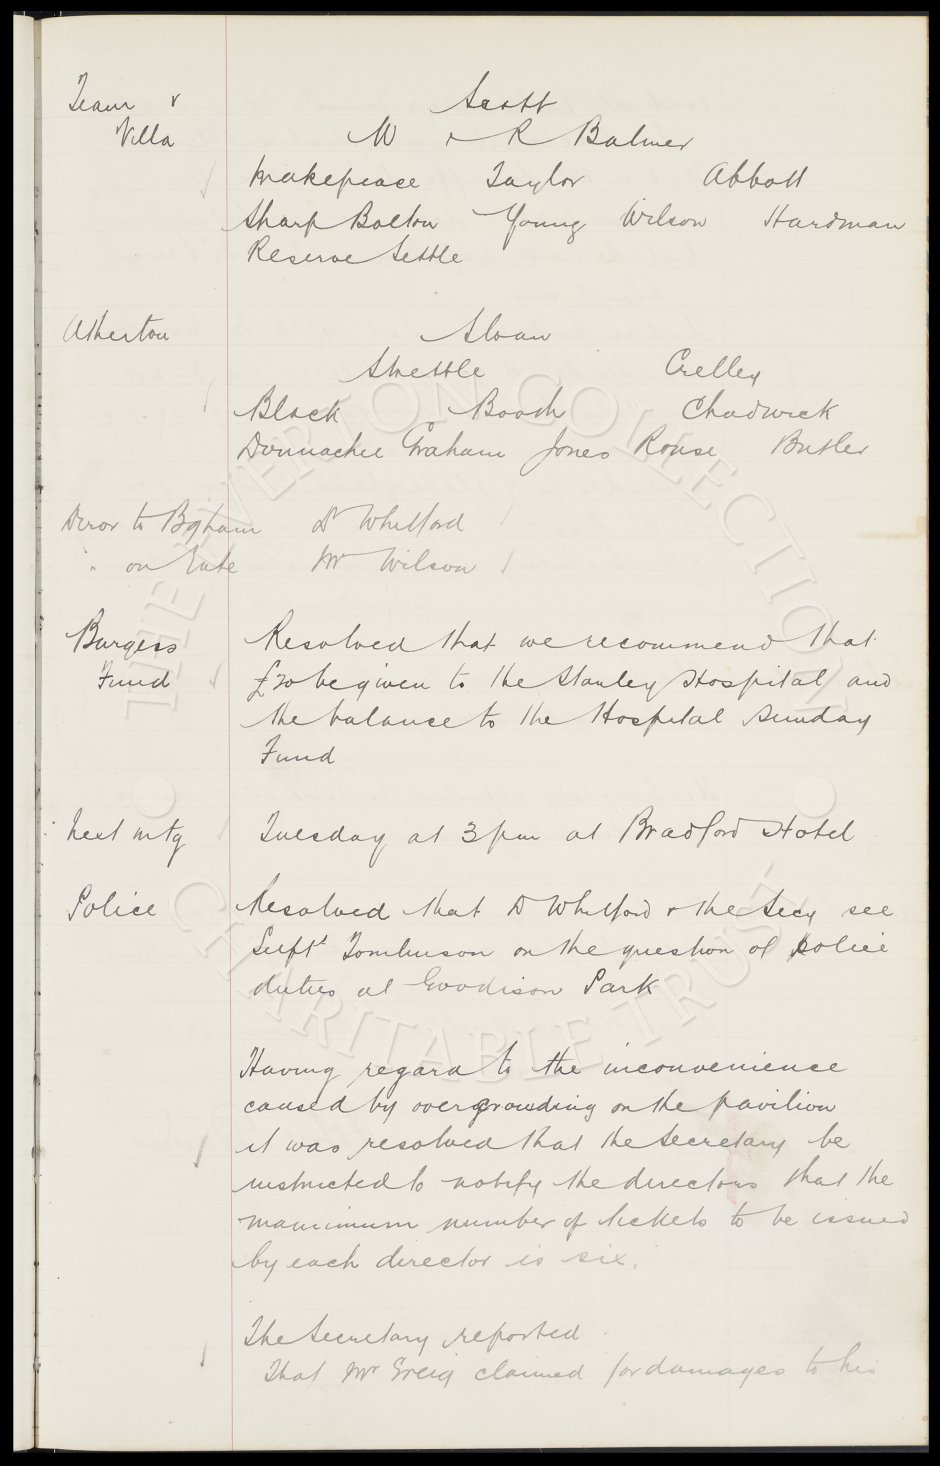 Team v Scott
Villa W & R Balmer
Makepeace Taylor Abbott
Sharp Bolton Young Wilson Hardman
Reserve Settle
Atherton Sloan
Strettle Crelley
Black Booth Chadwick
Donnachie Graham Jones Rouse Butler
Diror to Bgham Dr Whitford
" on Gate Mr Wilson
Burgess Resolved that we recommend that
Fund £20 be given to the Stanley Hospital and
the balance to the Hospital Sunday
Fund
Next mtg Tuesday at 3 pm at Bradford Hotel
Police Resolved that Dr Whitford & the Secy see
Supt Tomlinson on the question of police
duties at Goodison Park
Having regard to the inconvenience
caused by overcrowding on the pavilion
it was resolved that the Secretary be
instructed to notify the directors that the
maximum number of tickets to be issued
by each director is six.
The Secretary reported
That Mr Greig claimed for damages to his
THE EVERTON COLLECTION
CHARITABLE TRUST